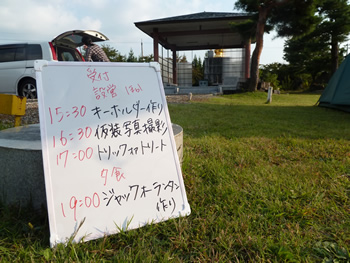 受付
設営
15:30 キーホルダー作り
16:30 仮装写真撮影
17:00 トリックオアトリート
夕食
19:00 ジャックオーランタン
作り